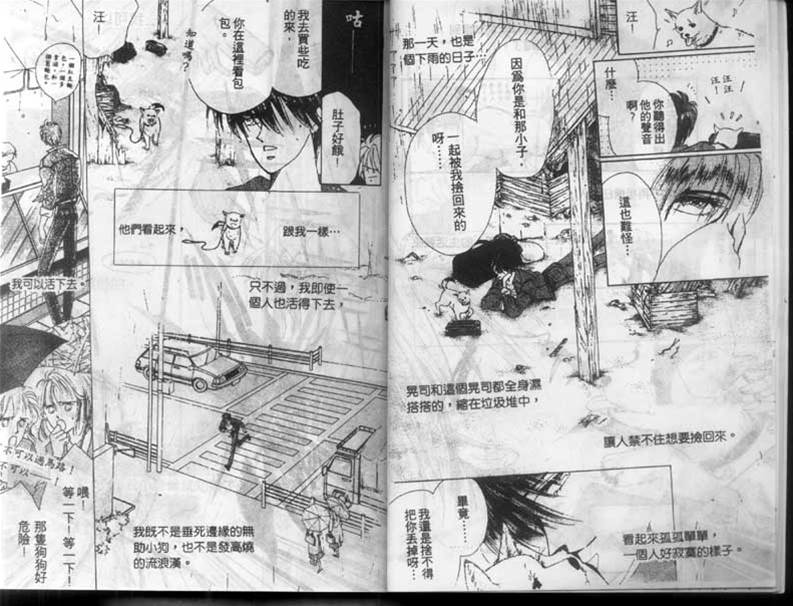 汪！
汪！
汪！
什麼…
你聽得出
他的聲音
啊？
這也難怪…
那一天，也是
個下雨的日子…
因為你是和那小子，
一起被我撿回來的
呀……
晃司和這個晃司都全身濕
搭搭的，縮在垃圾堆中，
讓人禁不住想要撿回來。
看起來孤孤單單，
一個人好寂寞的樣子。
畢竟……
我還是捨不得
把你丟掉呀…
咕——
我去買些吃
的來，
你在這裡看包
包。
知道嗎？
汪！
肚子好餓！
他們看起來，
跟我一樣…
只不過，我即使一
個人也活得下去，
我可以活下去。
我既不是垂死邊緣的無
助小狗，也不是發高燒
的流浪漢。
不可以過馬路！
不可以—！
喂！
等一下！等一下！
那隻狗狗好
危險！